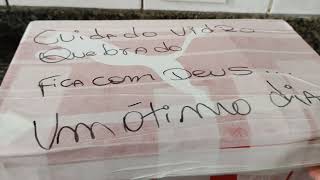 Cuidado vidro
Quebrado
Fica com Deus...
Um ótimo dia